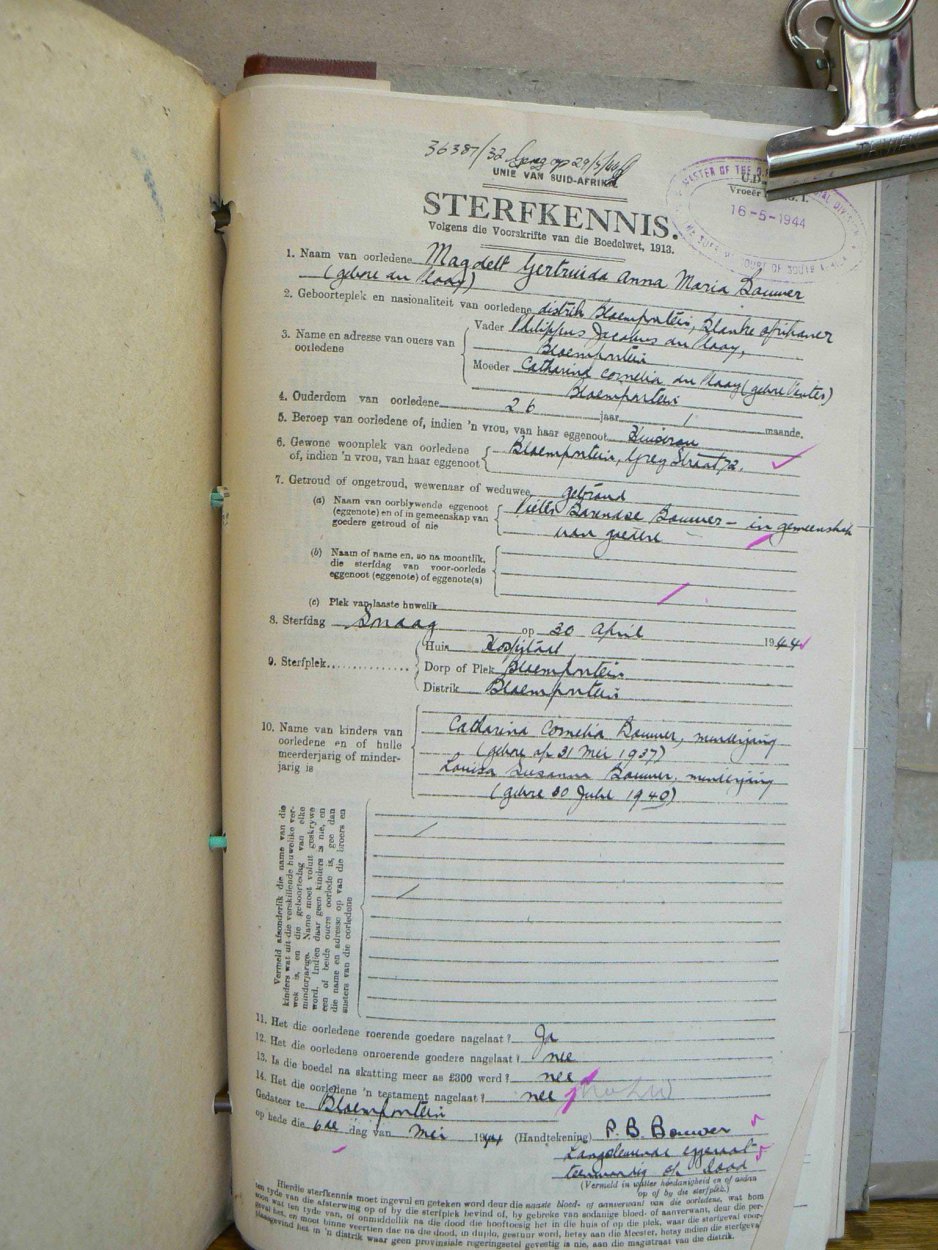 36387/32 29/5/44
UNIE VAN SUID-AFRIKA
MASTER OF THE
16-5-1944
STERFKENNIS.
Volgens die Voorskrifte van die Boedelwet, 1913.
1. Naam van oorledene Magdelt Gertruida Anna Maria Bouwer
(gebore du Plooy)
2. Geboorteplek en nasionaliteit van oorledene distrik Bloemfontein, Blanke afrikaner
3. Name en adresse van ouers van oorledene
Vader Philippus Jacobus du Plooy,
Bloemfontein
Moeder Catharina Cornelia du Plooy (gebore Venter)
Bloemfontein
4. Ouderdom van oorledene 26 jaar 1 maande.
5. Beroep van oorledene of, indien 'n vrou, van haar eggenoot Huisvrou
6. Gewone woonplek van oorledene
of, indien 'n vrou, van haar eggenoot
Bloemfontein, Grey Straat, 72.
7. Getroud of ongetroud, wewenaar of weduwee getroud
(a) Naam van oorblywende eggenoot
(eggenote) en of in gemeenskap van
goedere getroud of nie
Pieter Barendse Bouwer – in gemeenskap
van goedere –
(b) Naam of name en, so na moontlik,
die sterfdag van voor-oorlede
eggenoot (eggenote) of eggenote(s)
(c) Plek van laaste huwelik
8. Sterfdag Sondag op 30 April 1944
9. Sterfplek
Huis Hospitaal
Dorp of Plek Bloemfontein
Distrik Bloemfontein
10. Name van kinders van
oorledene en of hulle
meerderjarig of minder-
jarig is
Catharina Cornelia Bouwer, minderjarig
(gebore op 31 Mei 1937)
Louisa Susanna Bouwer, minderjarig
(gebore 30 Julie 1940)
Vermeld afsonderlik die name van die
kinders wat uit die verskillende huwelike ver-
wek is, en die geboortedag van elke
minderjarige. Name moet voluit geskrywe
word. Indien daar geen kinders is nie, en
een of beide ouers oorlede is, gee dan
die name en adresse op van die broers en
susters van die oorledene
11. Het die oorledene roerende goedere nagelaat? Ja
12. Het die oorledene onroerende goedere nagelaat? nee
13. Is die boedel na skatting meer as £300 werd? nee
14. Het die oorledene 'n testament nagelaat? nee
Gedateer te Bloemfontein
op hede die 6de dag van Mei 1944 (Handtekening) P. B. Bouwer
Langslewende eggenoot
teenwoordig by dood
(Vermeld in watter hoedanigheid en of anders
op of by die sterfplek.)
Hierdie sterfkennis moet ingevul en geteken word deur die naaste bloed- of aanverwant van die oorledene, wat
ten tyde van die afsterwing op of by die sterfplek bevind is, by gebreke van sodanige bloed- of aanverwant, deur die per-
soon wat ten tyde van, of onmiddellik na die dood die hooftoesig het in die huis of op die plek, waar die sterfgeval voor-
geval het, en moet binne veertien dae na die dood, in duplo, gestuur word, hetsy aan die Meester, hetsy indien die sterfgeval
plaasgevind het in 'n distrik waar geen provinsiale regeringsetel gevestig is nie, aan die magistraat van die distrik.